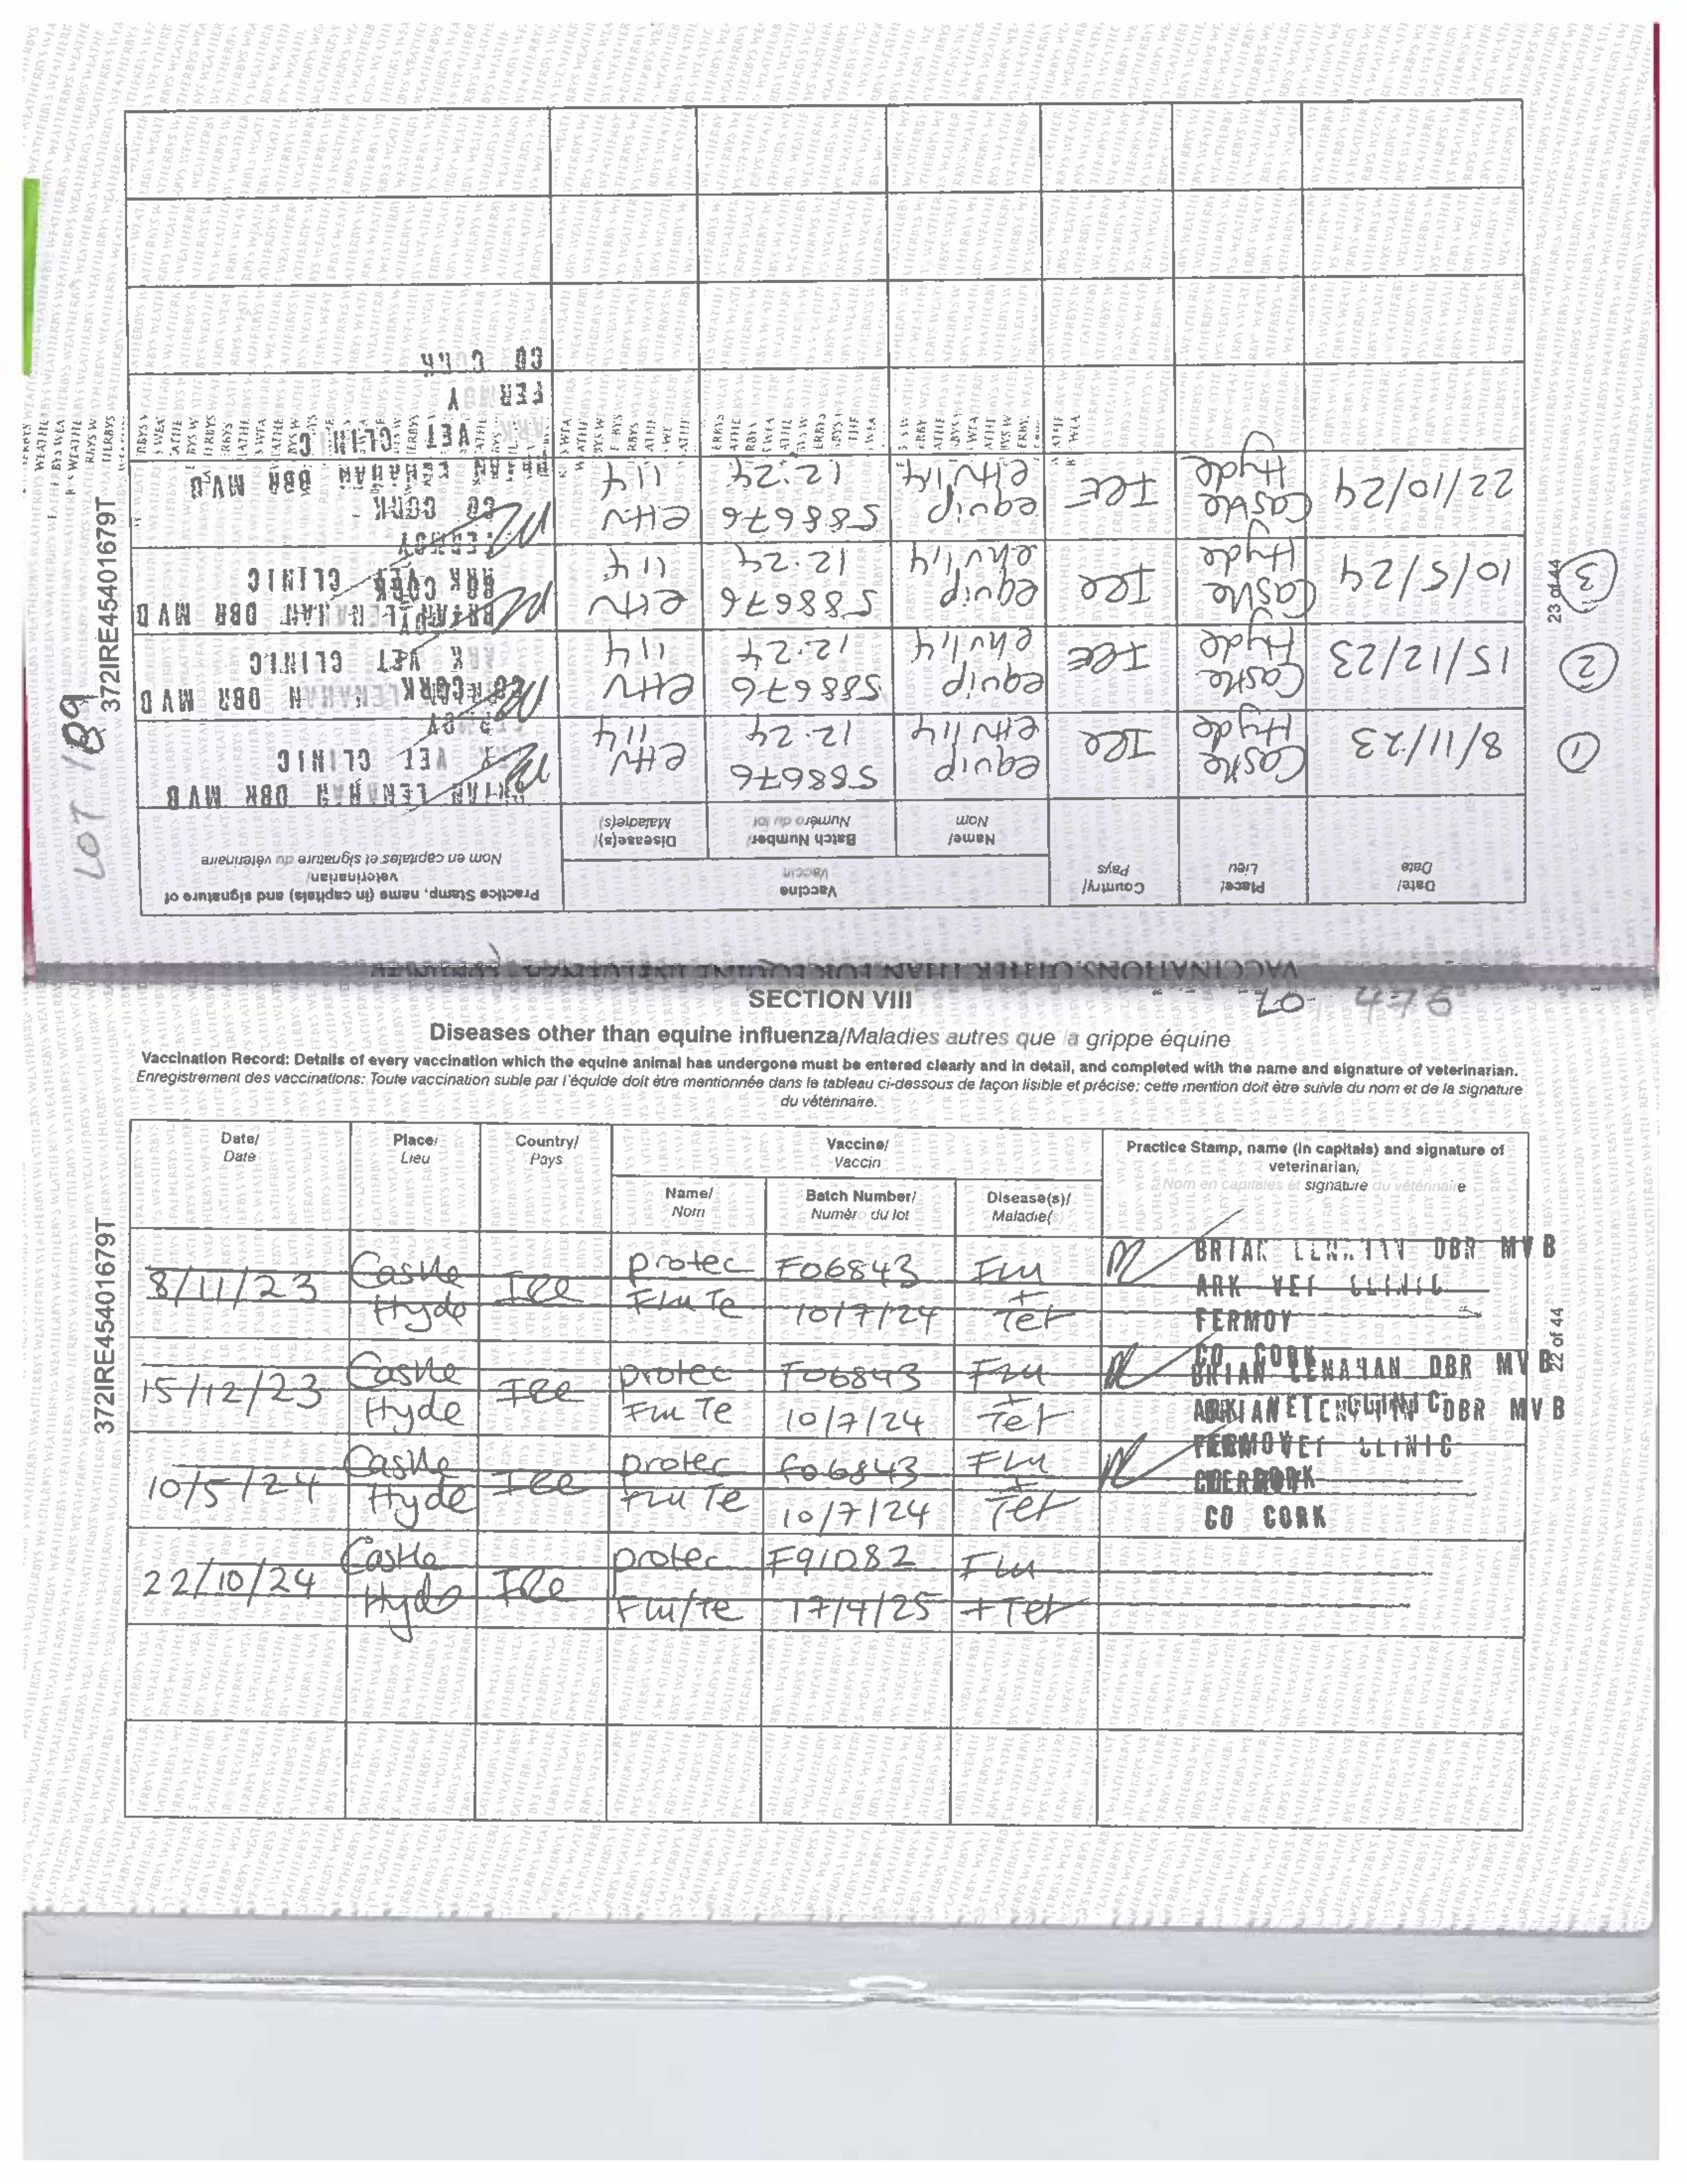 LOT 189
372IRE45401679T
23 of 44
Date/ Date
Place/ Lieu
Country/ Pays
Vaccine Vaccin
Name/ Nom
Batch Number/ Numéro du lot
Disease(s)/ Maladie(s)
Practice Stamp, name (in capitals) and signature of
veterinarian/
Nom en capitales et signature du vétérinaire
① 8/11/23 Castle Hyde Ire equip EHV 1,4 588676 12.24 EHV 114
BRIAN LENAHAN DBR MVB
VET CLINIC
② 15/12/23 Castle Hyde Ire equip ehv 1,4 588676 12.24 EHV 114
LENAHAN DBR MVB
ARK VET CLINIC
③ 10/5/24 Castle Hyde Ire equip ehv 1,4 588676 12.24 EHV 114
BRIAN LENAHAN DBR MVB
ARK VET CLINIC
CO CORK
22/10/24 Castle Hyde Ire equip EHV 1,4 588676 12.24 EHV 114
BRIAN LENAHAN DBR MVB
VET CLINIC
CO CORK
VACCINATIONS OTHER THAN FOR EQUINE INFLUENZA
SECTION VIII
Diseases other than equine influenza/Maladies autres que la grippe équine
Vaccination Record: Details of every vaccination which the equine animal has undergone must be entered clearly and in detail, and completed with the name and signature of veterinarian.
Enregistrement des vaccinations: Toute vaccination subie par l'équidé doit être mentionnée dans le tableau ci-dessous de façon lisible et précise; cette mention doit être suivie du nom et de la signature
du vétérinaire.
372IRE45401679T
22 of 44
Date/ Date
Place/ Lieu
Country/ Pays
Vaccine/ Vaccin
Name/ Nom
Batch Number/ Numéro du lot
Disease(s)/ Maladie(
Practice Stamp, name (in capitals) and signature of
veterinarian,
Nom en capitales et signature du vétérinaire
8/11/23 Castle Hyde Ire protec Flu Te F06843 10/7/24 Flu + Tet
BRIAN LENAHAN DBR MVB
ARK VET CLINIC
FERMOY
CO CORK
15/12/23 Castle Hyde Ire protec Flu Te F06843 10/7/24 Flu + Tet
BRIAN LENAHAN DBR MVB
10/5/24 Castle Hyde Ire protec Flu Te f06843 10/7/24 Flu + Tet
DBR MVB
CLINIC
CO CORK
22/10/24 Castle Hyde Ire protec Flu/Te F91082 17/4/25 Flu + Tet